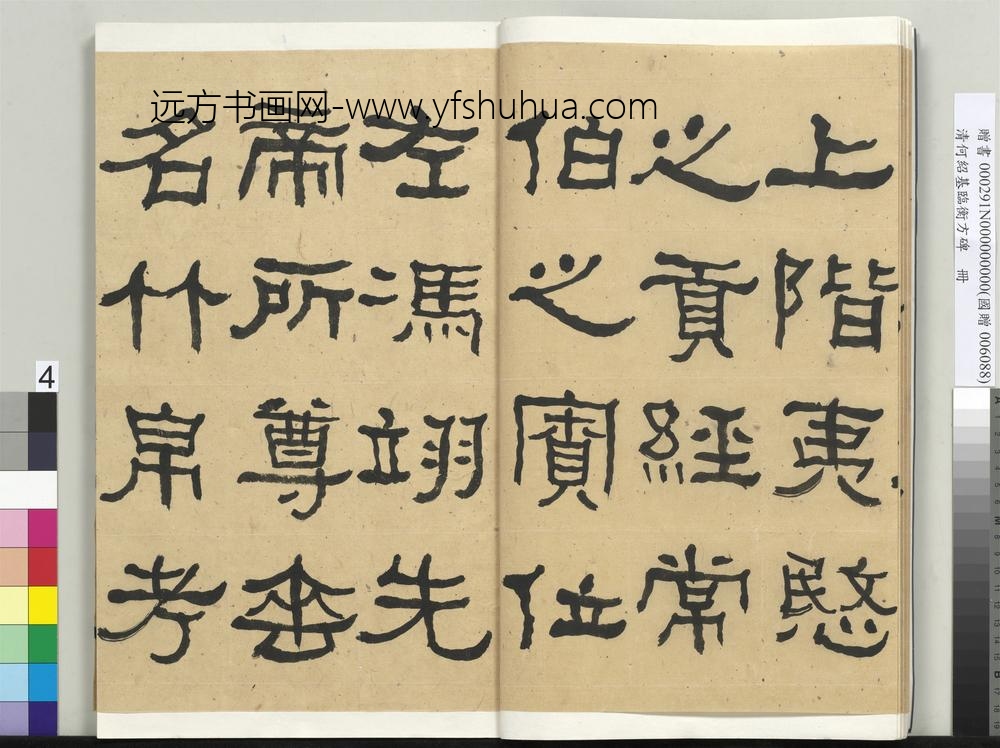 上階夷愍
之貢經常
伯之寮位
左馮翊先
帝所尊垂
名竹帛考
远方书画网-www.yfshuhua.com
贈書 000291N000000000(國贈 006088)
清何紹基臨衡方碑 冊
4